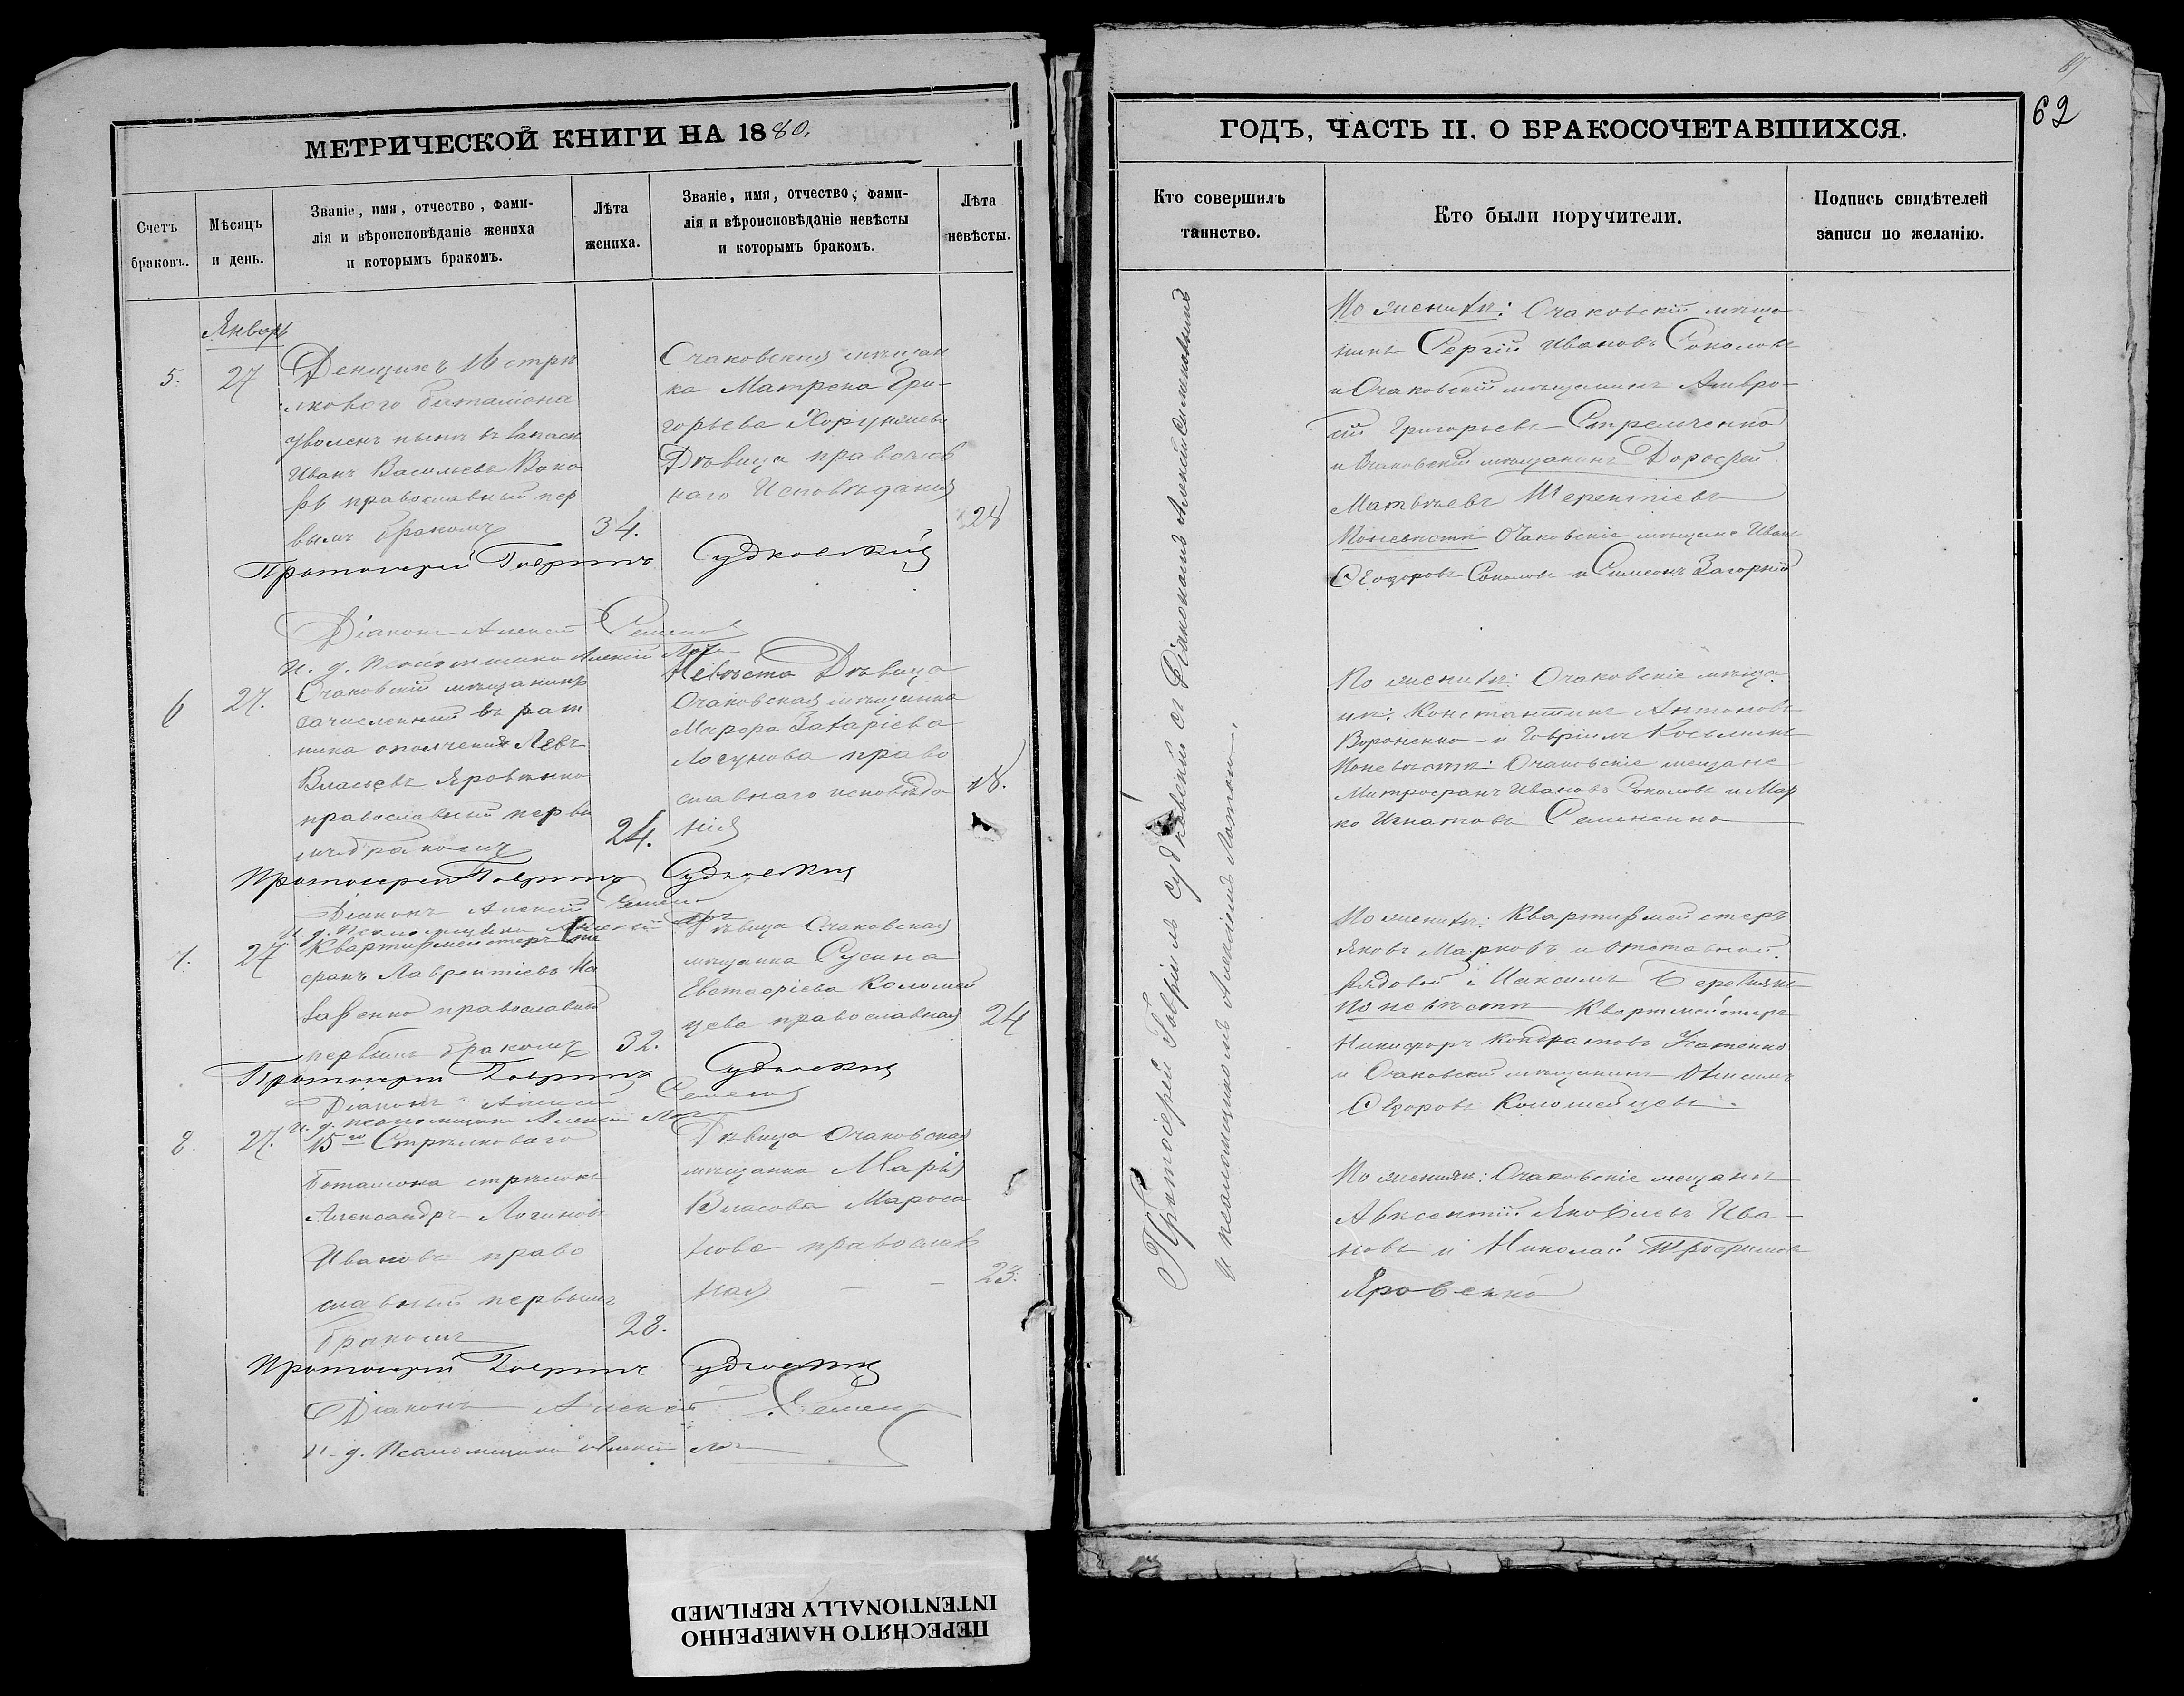 МЕТРИЧЕСКОЙ КНИГИ НА 1880.
Счетъ браковъ.
Мѣсяцъ и день.
Званіе, имя, отчество, фами-
лія и вѣроисповѣданіе жениха
и которымъ бракомъ.
Лѣта жениха.
Званіе, имя, отчество, фами-
лія и вѣроисповѣданіе невѣсты
и которымъ бракомъ.
Лѣта невѣсты.
Январь
5.
27
Денщикъ 16 стрѣ
лковаго баталіона
уволенъ нынѣ въ запасъ
Иванъ Васильевъ
православный пер
вымъ бракомъ
34.
Очаковская мѣщан
ка Матрона Гри-
горьева Хорунжева
Дѣвица православ
наго Исповѣданія
28
Протоіерей Гавріилъ Судковскій
Діаконъ Алексій Семенов
И. д. Псаломщика Алексій Лот
6
27.
Очаковскій мѣщанинъ
зачисленный въ рат
ника ополченія Левъ
Власьевъ Яровенко
православный первы
мъ бракомъ
24.
Невѣста Дѣвица
Очаковская мѣщанка
Марфа Захаріева
Логунова право
славнаго исповѣда
нія
18.
Протоіерей Гавріилъ Судковскій
Діаконъ Алексій Семен
И. д. Псаломщика Алексій Лот
7.
27
Квартирмейстеръ Сте
фанъ Лаврентіевъ На
заренко православный
первымъ бракомъ
32.
Дѣвица Очаковская
мѣщанка Сусана
Евстафіева Коломій
цева православная
24
Протоіерей Гавріилъ Судковскій
Діаконъ Алексій Семенов
И. д. псаломщика Алексій Лот
8.
27.
15го Стрѣлковаго
баталіона стрѣлокъ
Александръ Логиновъ
Ивановъ право
славный первымъ
бракомъ
28.
Дѣвица Очаковская
мѣщанка Марія
Власова Мароса
нова православ
ная
23.
Протоіерей Гавріилъ Судковскій
Діаконъ Алексій Семен
И. д. Псаломщика Алексій Лот
ГОДЪ, ЧАСТЬ II. О БРАКОСОЧЕТАВШИХСЯ.
62
Кто совершилъ таинство.
Кто были поручители.
Подпись свидѣтелей
записи по желанію.
Протоіерей Гавріилъ Судковскій съ Діакономъ Алексіемъ
и псаломщикомъ Алексіемъ
По женихѣ: Очаковскій мѣща
нинъ Сергій Ивановъ Соколовъ
и Очаковскій мѣщанинъ Амвро-
сій Григорьевъ Стрельченко
и Очаковскій мѣщанинъ Дорофей
Матвѣевъ Терентіевъ
По невѣстѣ Очаковскіе мѣщане Иванъ
Ѳеодоровъ Соколовъ и Симеонъ Загорній
По женихѣ: Очаковскіе мѣща
не: Константинъ Антоновъ
Вороненко и Гавріилъ Косьминъ
По невѣстѣ: Очаковскіе мещане
Митрофанъ Ивановъ Соколовъ и Мар
ко Игнатовъ Семененко
По женихѣ: Квартирмейстеръ
Яковъ Марковъ и отставной
рядовой Максимъ
По невѣстѣ Квартирмейстеръ
Никифоръ Кондратовъ Усатенко
и Очаковскій мѣщанинъ Онисимъ
Ѳедоровъ Коломейцевъ.
По женихѣ: Очаковскіе мещане
Авксентій Яковлевъ Ива-
новъ и Николай Трофимовъ
Яровенко
ПЕРЕСНЯТО НАМЕРЕННО
INTENTIONALLY REFILMED